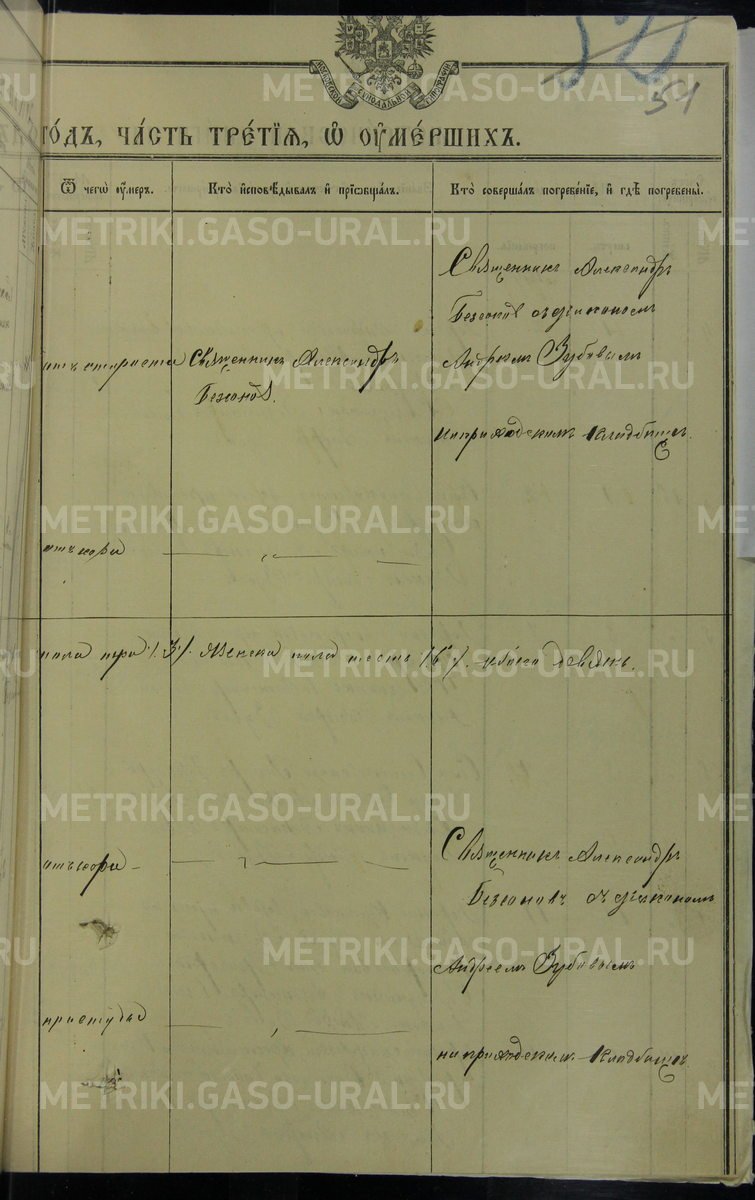 51
МОСКОВСКОЙ СѴНОДАЛЬНОЙ ТИПОГРАФІИ
го́дъ, ча́сть тре́тїѧ, ѡ҆ оу҆ме́ршихъ.
Ѿ чегѡ̀ оу҆́меръ.
Кто̀ и҆сповѣ́дывалъ и҆ прїѡбща́лъ.
Кто̀ соверша́лъ погребе́нїе, и҆ гдѣ̀ погребены̀.
отъ старости
Священникъ Александръ
Безсонов.
Священникъ Александръ
Безсонов съ діакономъ
Андреемъ Зубовымъ
на приходскомъ кладбищѣ.
отъ кори — „ —
пола три /3/. Женска пола шесть /6/. — девять.
отъ кори —
Священникъ Александръ
Безсоновъ съ діакономъ
Андреемъ Зубовымъ
простуды
на приходскомъ кладбищѣ
METRIKI.GASO-URAL.RU